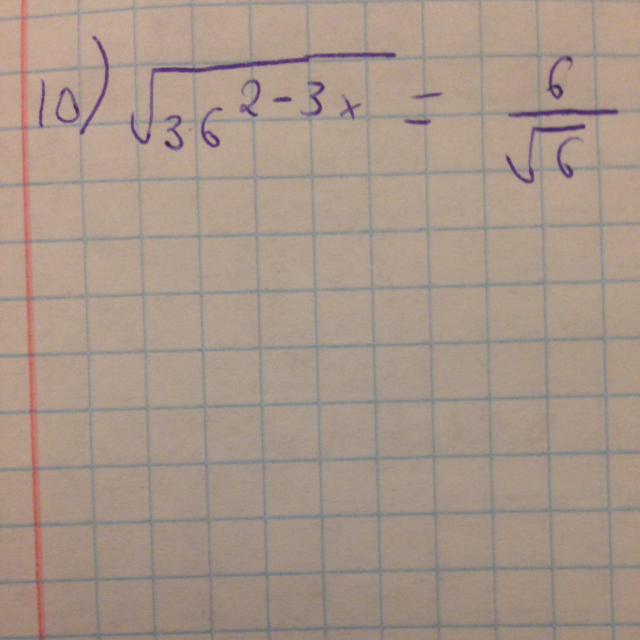 10) √(3·6^(2-3x)) = 6/√6